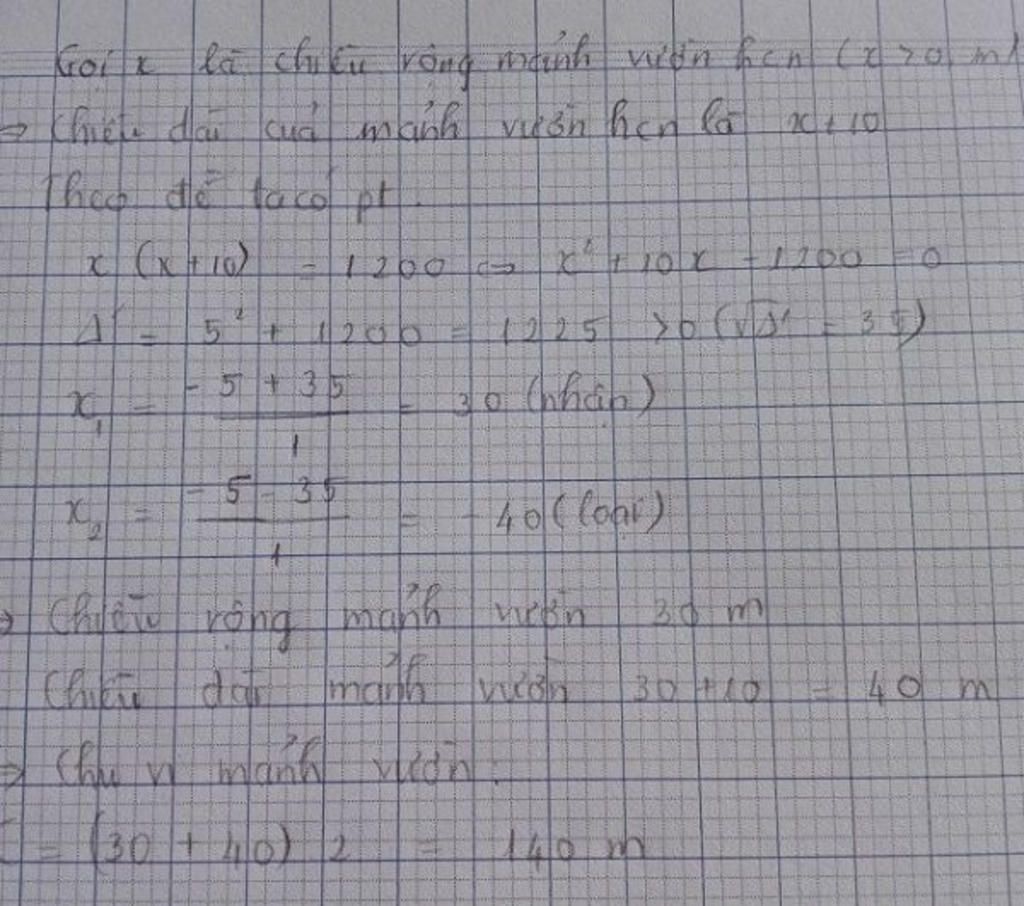 Gọi x là chiều rộng mảnh vườn hcn (x > 0 m)
=> Chiều dài cuả mảnh vườn hcn là x + 10
Theo đề ta có pt
x (x + 10) = 1200 <=> x² + 10x - 1200 = 0
Δ' = 5² + 1200 = 1225 > 0 (√Δ' = 35)
x₁ = (-5 + 35)/1 = 30 (nhận)
x₂ = (-5 - 35)/1 = -40 (loại)
=> Chiều rộng mảnh vườn 30 m
Chiều dài mảnh vườn 30 + 10 = 40 m
=> Chu vi mảnh vườn:
= (30 + 40) 2 = 140 m